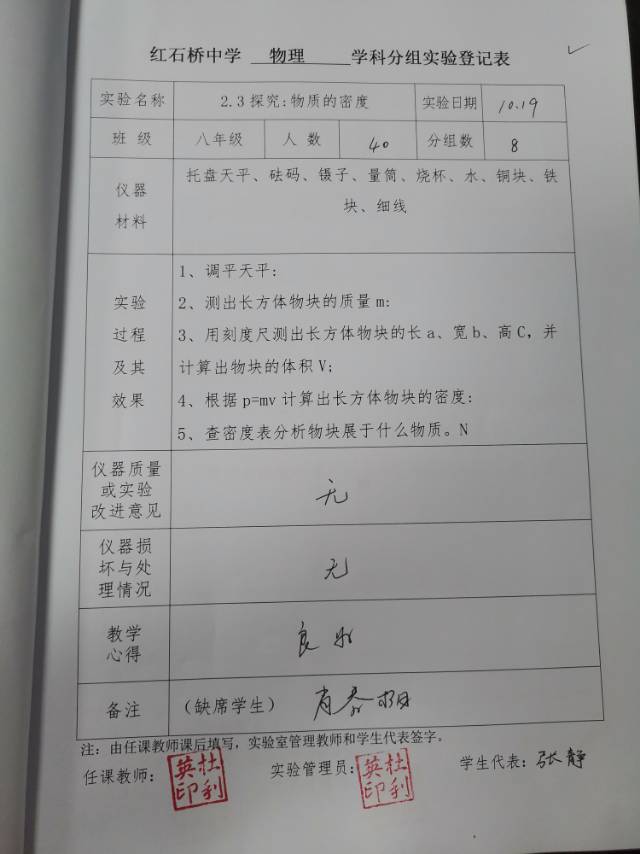 红石桥中学 物理 学科分组实验登记表
实验名称 2.3探究:物质的密度 实验日期 10.19
班 级 八年级 人 数 40 分组数 8
仪器材料 托盘天平、砝码、镊子、量筒、烧杯、水、铜块、铁
块、细线
实验过程及其效果 1、调平天平:
2、测出长方体物块的质量m:
3、用刻度尺测出长方体物块的长a、宽b、高C，并
计算出物块的体积V;
4、根据p=mv计算出长方体物块的密度:
5、查密度表分析物块展于什么物质。N
仪器质量
或实验
改进意见
无
仪器损
坏与处
理情况
无
教学
心得
良好
备注 （缺席学生）
注：由任课教师课后填写，实验室管理教师和学生代表签字。
任课教师： 杜利英印 实验管理员： 杜利英印 学生代表：张静